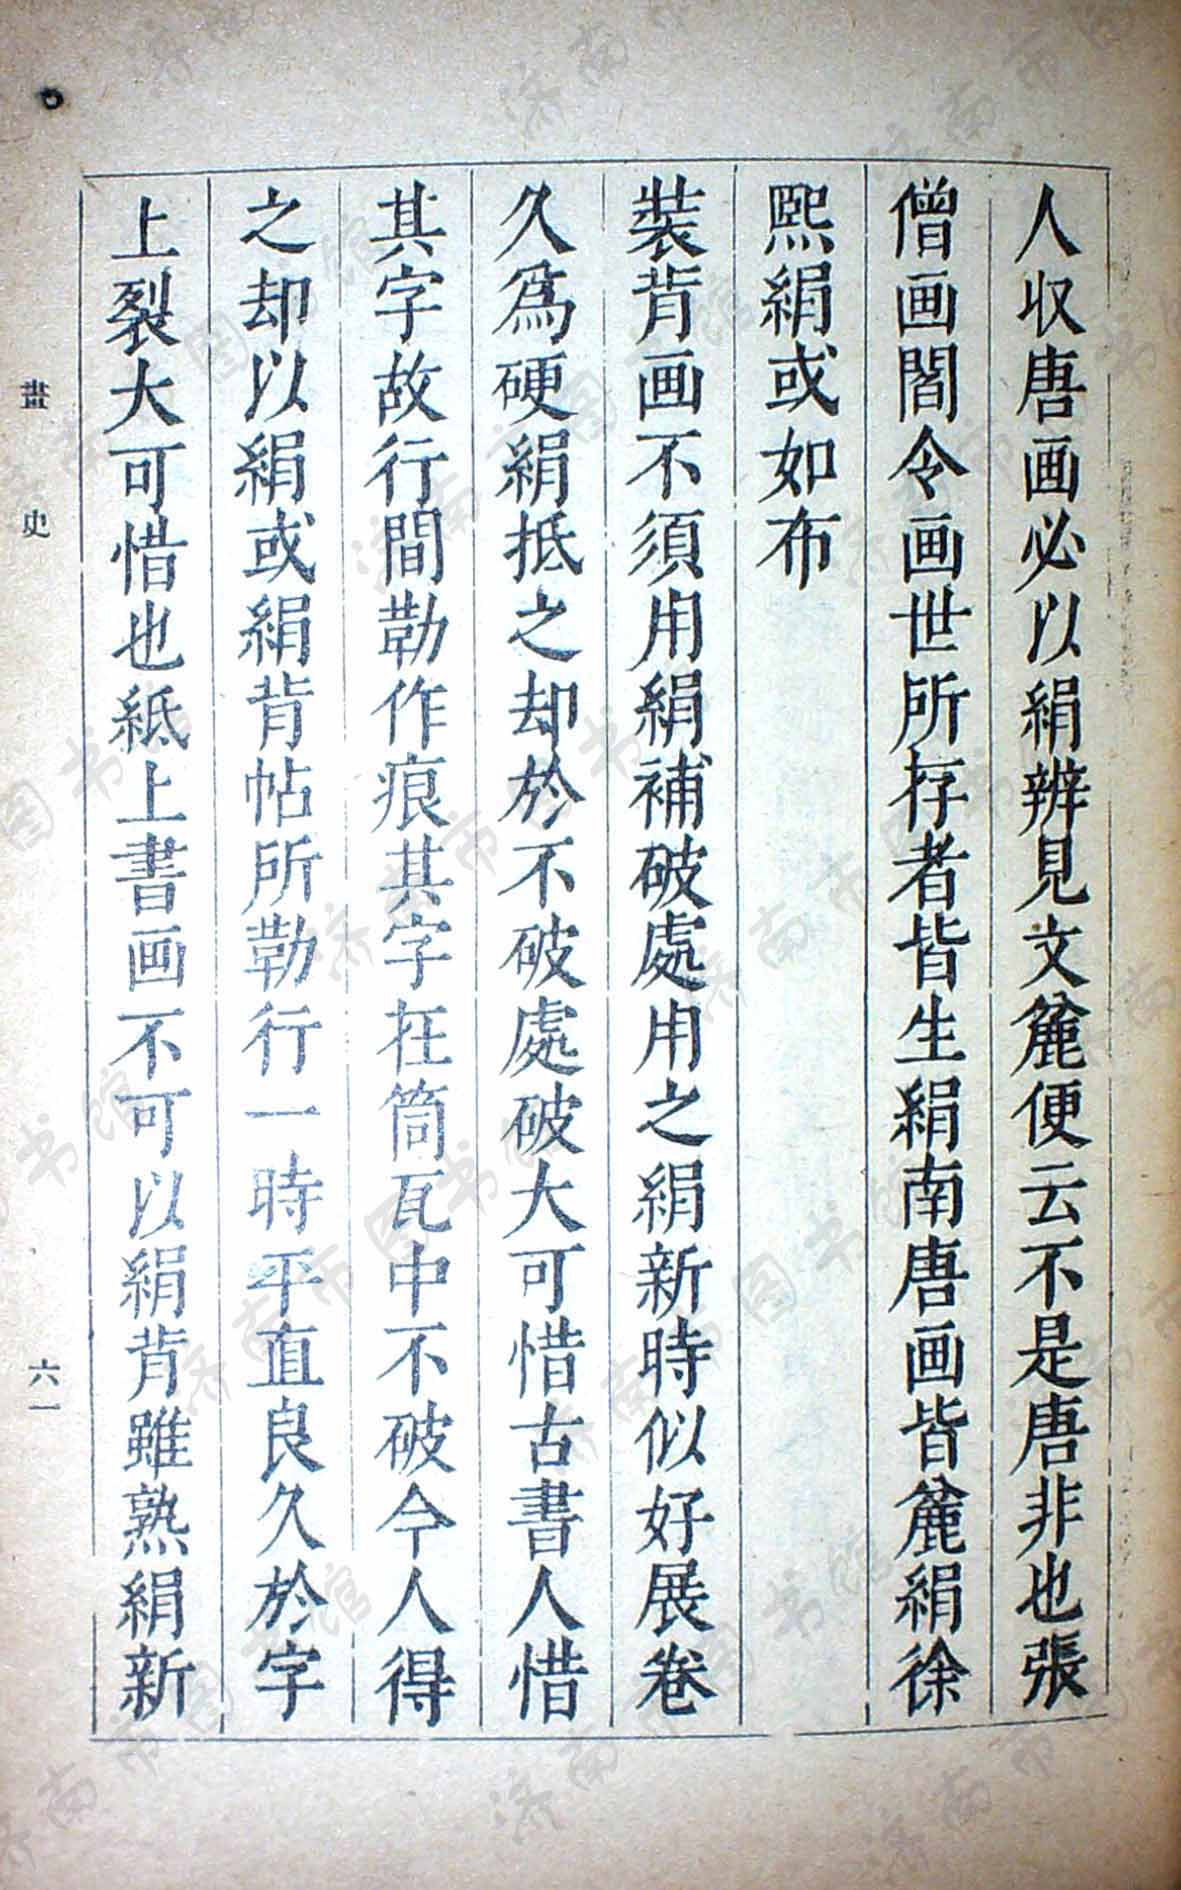 人収唐画必以絹辨見文麄便云不是唐非也張
僧画閻令画世所存者皆生絹南唐画皆麄絹徐
熙絹或如布
裝背画不須用絹補破處用之絹新時似好展卷
久爲硬絹抵之却於不破處破大可惜古書人惜
其字故行間勒作痕其字在筒瓦中不破今人得
之却以絹或絹背帖所勒行一時平直良久於字
上裂大可惜也紙上書画不可以絹背雖熟絹新
畫史
六一
济南市图书馆